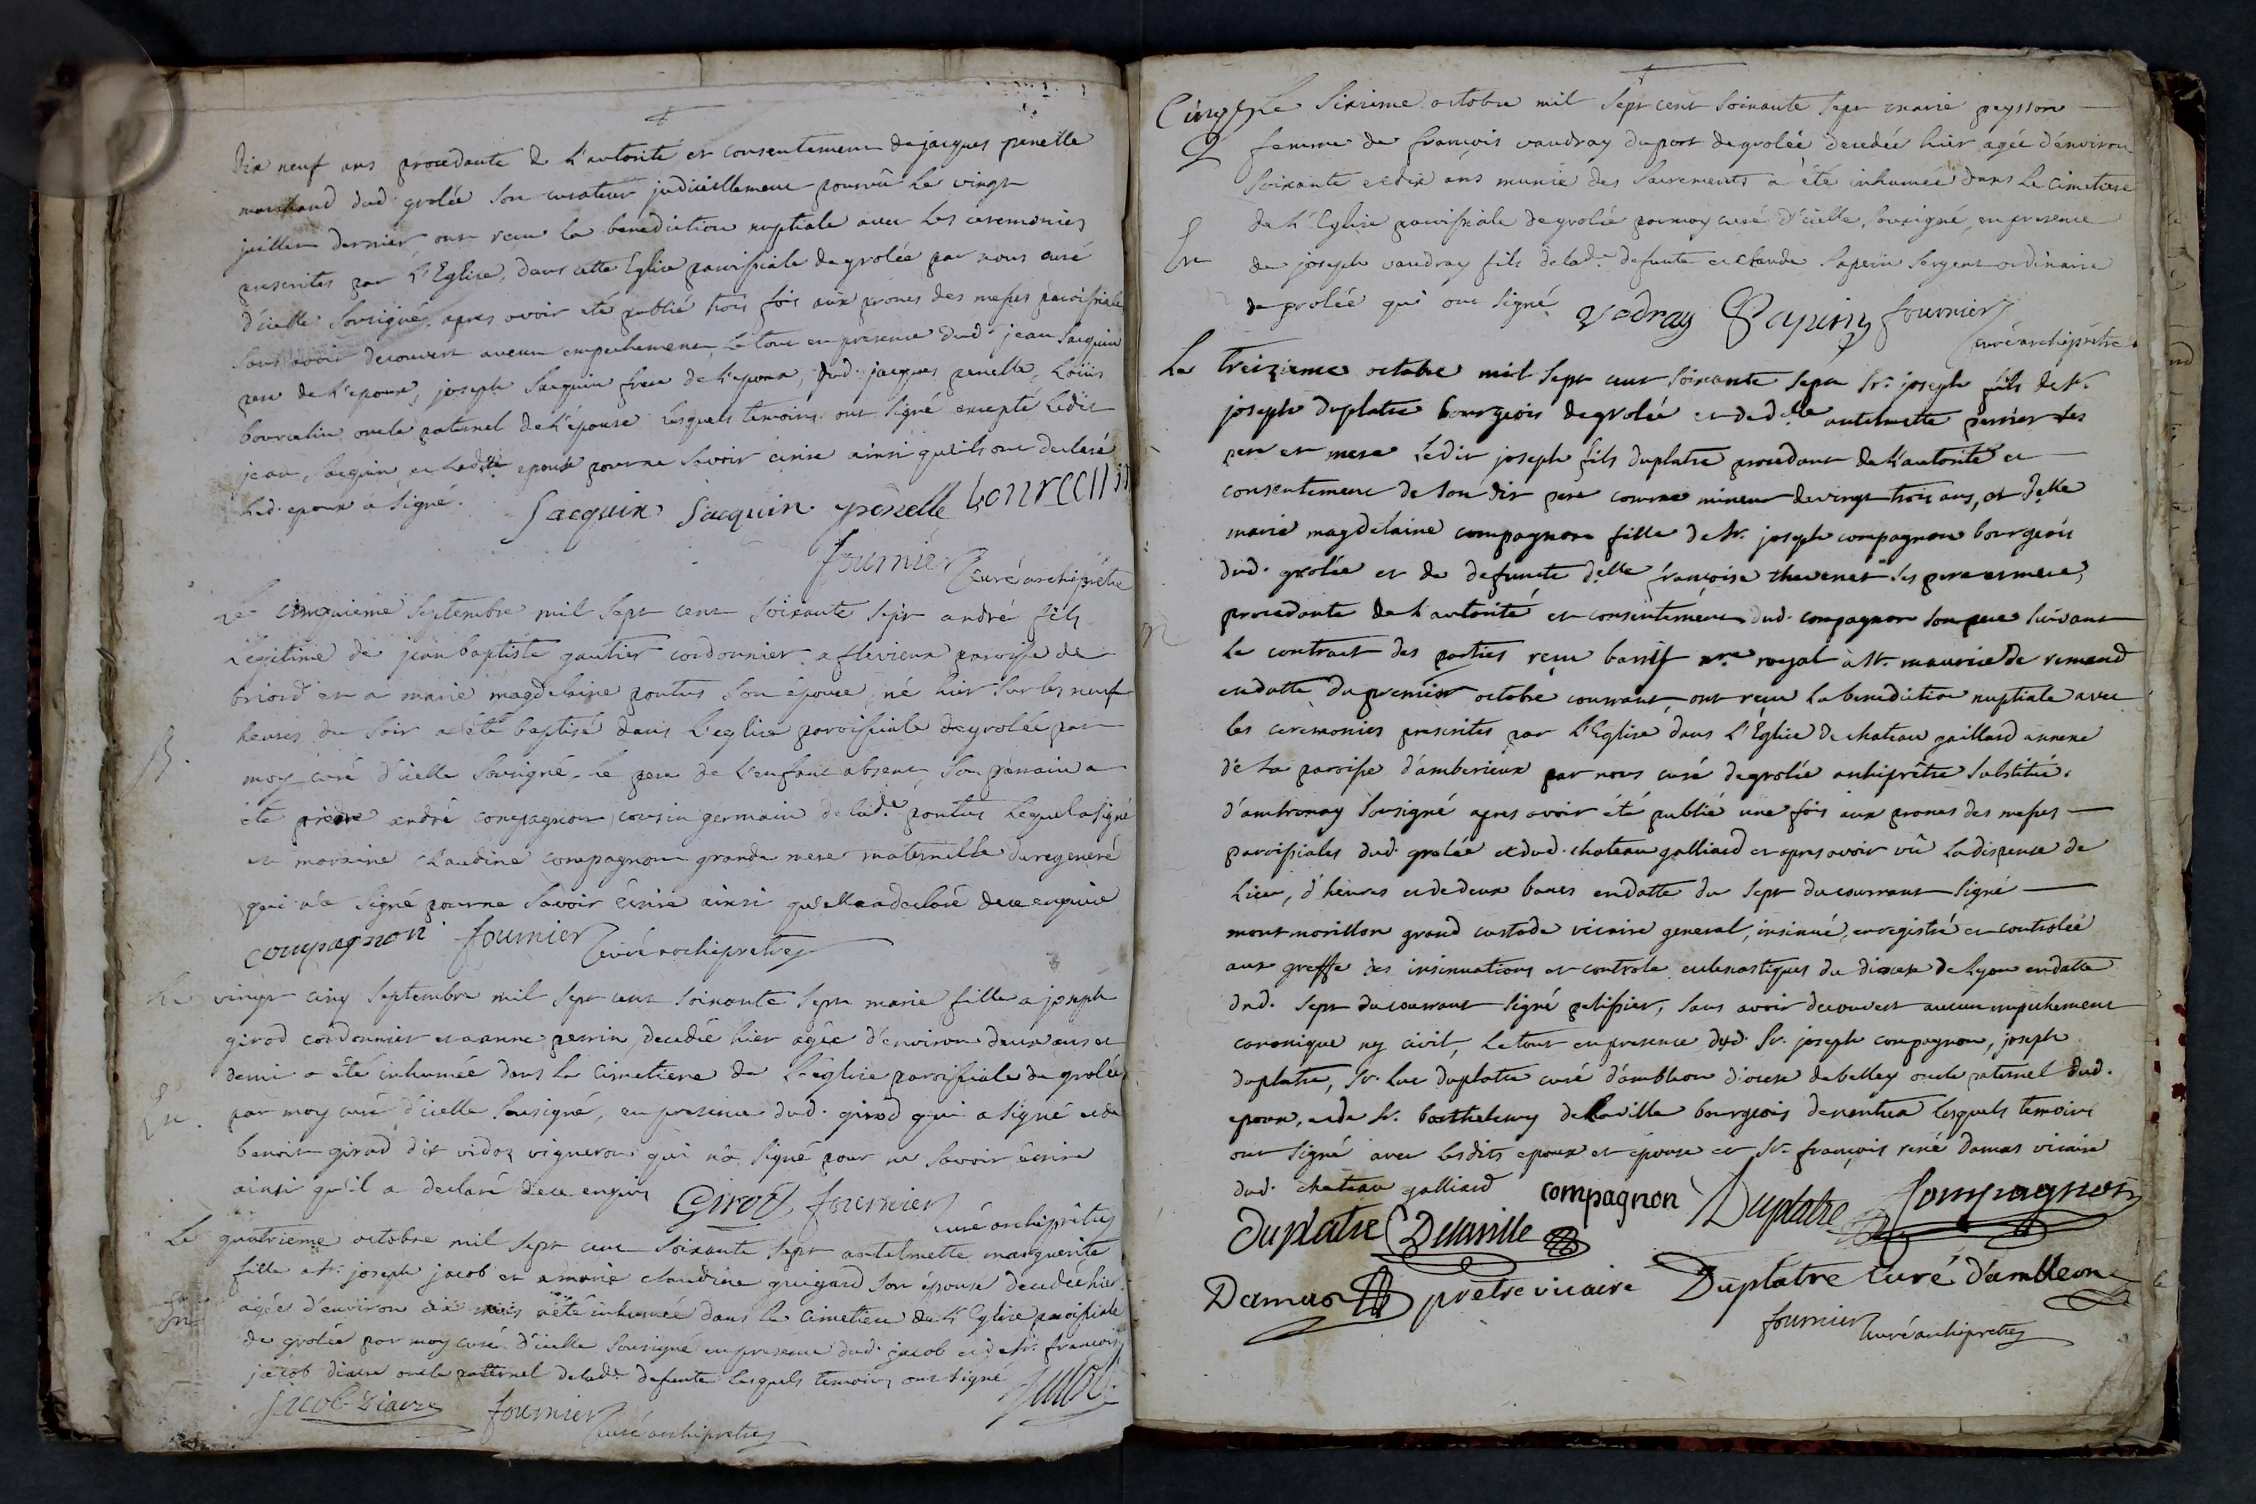 dix neuf ans procedante de l'autorité et consentement de jacques penelle
marchand dud. grolée son curateur judiciellement pourvû le vingt
juillet dernier ont reçu la benediction nuptiale avec les ceremonies
prescrites par l'Eglise, dans cette Eglise paroissiale de grolée par nous curé
d'icelle sousigné, apres avoir eté publié trois fois aux prones des messes paroissiales
sans avoir decouvert aucun empechement, le tout en presence dud. jean Sacquin
pere de l'epoux, joseph Sacquin frere de l'epoux, dud. jacques penelle, Loüis
bourcelin oncle paternel de l'épouse lesquels temoins ont signé excepté ledit
jean Sacquin et ladte epouse pour ne savoir écrire ainsi qu'ils ont declaré
led. epoux a signé. Sacquin Sacquin penelle bourcelin
fournier curé archiprêtre
Le cinquieme septembre mil sept cent soixante sept andré fils
légitime de jean baptiste gautier cordonnier a flevieux paroisse de
briord et a marie magdelaine pontus son épouse, né hier sur les neuf
heures du soir a été baptisé dans l'eglise paroissiale de grolée par
B.
moy curé d'icelle sousigné. le pere de l'enfant absent, son parrain a
été andré compagnon cousin germain de lad.e pontus lequel a signé
et maraine claudine compagnon grande mere maternelle du regeneré
qui n'a signé pour ne savoir écrire ainsi qu'elle a declaré de ce enquise
compagnon fournier curé archipretre
Le vingt cinq septembre mil sept cent soixante sept marie fille a joseph
girod cordonnier et a anne perrin, decedée hier agée d'environ deux ans et
demi a été inhumée dans le cimetiere de l'église paroissiale de grolée
par moy curé d'icelle sousigné, en presence dud. girod qui a signé et de
benoit girod dit vidoz vigneron qui n'a signé pour ne savoir écrire
ainsi qu'il a declaré de ce enquis Girod fournier
curé archiprêtre
Le quatrieme octobre mil sept cent soixante sept antelmette marguerite
fille a sr. joseph jacob et a marie claudine guigard son épouse decedée hier
agée d'environ dix mois a été inhumée dans le cimetiere de l'Eglise paroissiale
de grolée par moy curé d'icelle sousigné en presence dud. jacob et de sr. françois
jacob diacre oncle paternel de lad.e defunte lesquels temoins ont signé
jacob diacre fournier jacob
curé archipretre
Le sixieme octobre mil sept cent soixante sept marie peysson
femme de françois vaudray du port de grolée decedée hier agée d'environ
soixante et dix ans munie des sacrements a été inhumée dans le cimetiere
de l'Eglise paroissiale de grolée par moy curé d'icelle, sousigné, en presence
de joseph vaudray fils de lad.e defunte et claude sapein sergent ordinaire
de grolée qui ont signé. vodray Sapein fournier
curé archiprêtre
Le treizieme octobre mil sept cent soixante sept sr. joseph fils de sr.
joseph duplatre bourgeois de grolée et de d.elle antelmette perrier ses
pere et mere ledit joseph fils duplatre procedant de l'autorité et
consentement de son dit pere comme mineur de vingt trois ans, et d.elle
marie magdelaine compagnon fille de sr. joseph compagnon bourgeois
dud. grolée et de defuncte d.elle françoise thevenet ses pere et mere,
procedante de l'autorité et consentement dud. compagnon son pere suivant
le contract des parties reçu barrif nre. royal à st. maurice de remand
en datte du premier octobre courrant, ont reçu la benediction nuptiale avec
les ceremonies prescrites par l'Eglise dans l'Eglise de chateau gaillard annexe
de la paroisse d'amberieux par nous curé de grolée archiprêtre substitué
d'ambronay sousigné apres avoir été publié une fois aux prones des messes
paroissiales dud. grolée et dud. chateau galliard et apres avoir vû la dispense de
lieu, d'heures et de deux bancs en datte du sept du courrant signé
montmorillon grand custode vicaire general, insinué, enregistré et controlée
aux greffe des insinuations et controle eclesiastiques du diocese de Lyon en datte
dud. sept du courrant signé pelissier, sans avoir decouvert aucun empechement
canonique ny civil, le tout en presence dud. sr. joseph compagnon, joseph
duplatre, sr. luc duplatre curé d'ambleon diocese de belley oncle paternel dud.
epoux, et de sr. barthelemy delaville bourgeois de lesquels temoins
ont signé avec lesdits epoux et épouse et sr. françois rené damas vicaire
dud. chateau galliard compagnon Duplatre Compagnon
duplatre Delaville
Damas prêtre vicaire Duplatre Curé d'ambleon
fournier curé archipretre